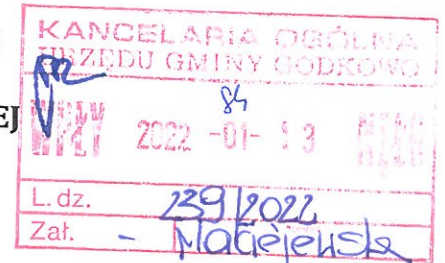 KANCELARIA OGÓLNA
URZĘDU GMINY GODKOWO
EJ
84
WPŁY 2022 -01- 13
L. dz. 239/2022
Zał. - Maciejewska